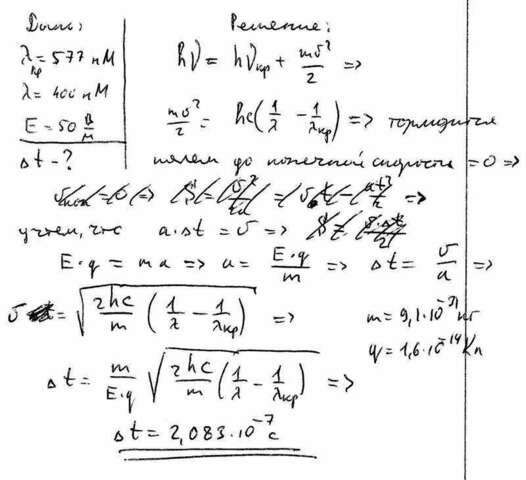 Дано:
λкр = 577 нМ
λ = 400 нМ
E = 50 В/м
Δt - ?
Решение:
hν = hνкр + mv²/2 =>
mv²/2 = hc(1/λ - 1/λкр) => тормозится
полем до конечной скорости = 0 =>
учтем, что a·Δt = v =>
E·q = ma => a = E·q/m => Δt = v/a =>
v = √(2hc/m (1/λ - 1/λкр)) =>
m = 9,1·10⁻³¹ кг
q = 1,6·10⁻¹⁹ Кл
Δt = m/E·q √(2hc/m (1/λ - 1/λкр)) =>
Δt = 2,083·10⁻⁷ с